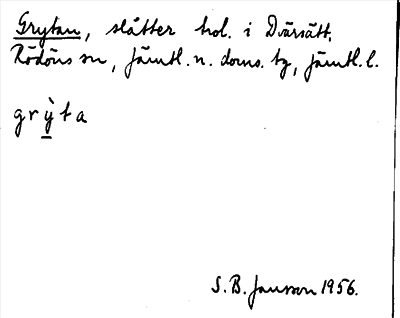 Grytan, slåtter hol. i Dvärsätt,
Rödöns sn, Jämtl. n. doms. tg, Jämtl. l.
grỳta
S. B. Jansson 1956.